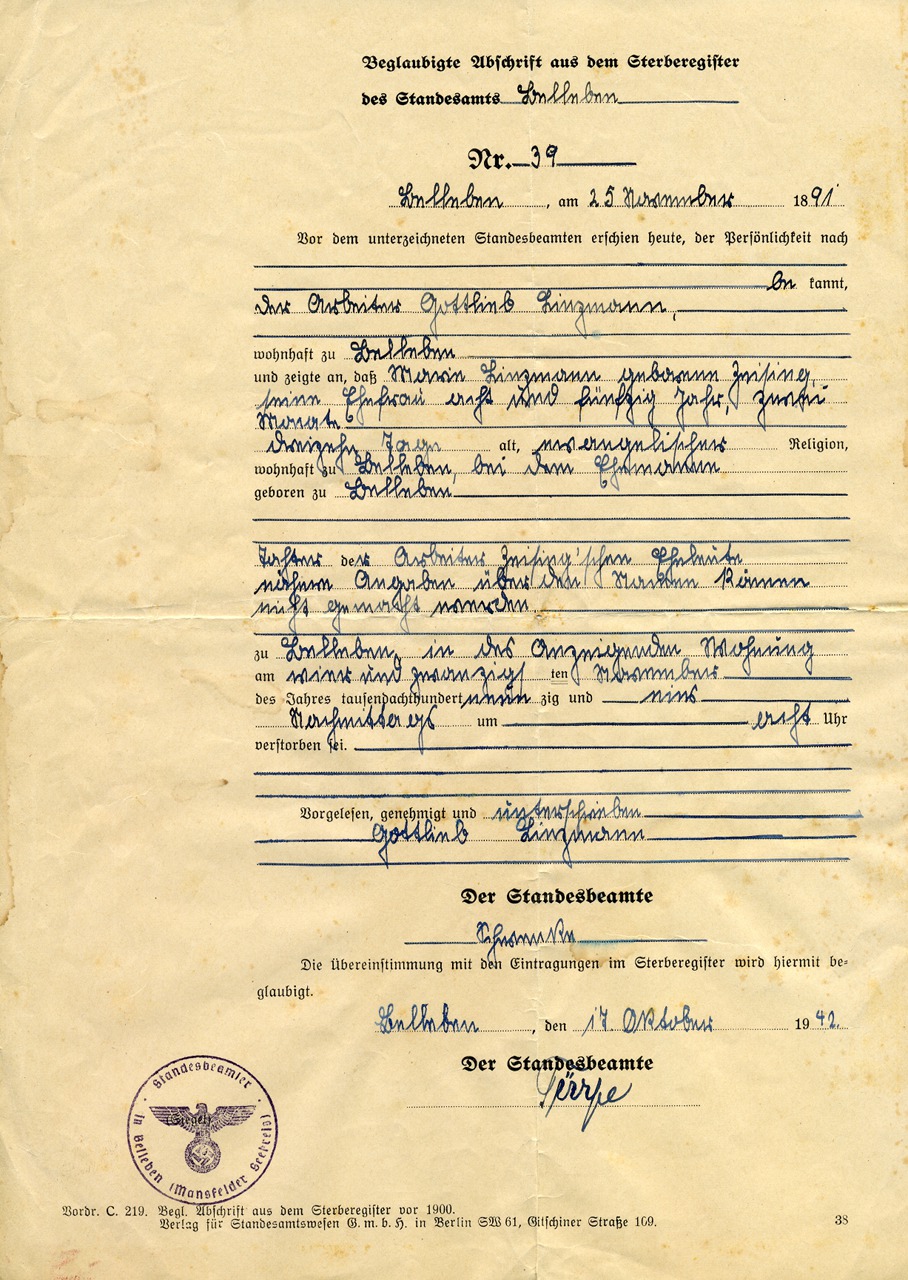 Beglaubigte Abschrift aus dem Sterberegister
des Standesamts Belleben
Nr. 39
Belleben, am 25 November 1891
Vor dem unterzeichneten Standesbeamten erschien heute, der Persönlichkeit nach
be kannt,
der Arbeiter Gottlieb Linzmann,
wohnhaft zu Belleben
und zeigte an, daß Marie Linzmann geborene Zeising,
seine Ehefrau acht und fünfzig Jahr, zwei
Monate
dreizehn Tage alt, evangelischer Religion,
wohnhaft zu Belleben, bei dem Ehemanne
geboren zu Belleben
Tochter der Arbeiter Zeising'schen Eheleute
nähere Angaben über den Namen können
nicht gemacht werden.
zu Belleben, in des Anzeigenden Wohnung
am vier und zwanzigs ten November
des Jahres tausendachthundert neun zig und eins
Nachmittags um acht Uhr
verstorben sei.
Vorgelesen, genehmigt und unterschrieben
Gottlieb Linzmann
Der Standesbeamte
Schwenke
Die Übereinstimmung mit den Eintragungen im Sterberegister wird hiermit be-
glaubigt.
Belleben, den 17. Oktober 1942.
Der Standesbeamte
Standesbeamter
(Siegel)
in Belleben (Mansfelder Seekreis)
Vordr. C. 219. Begl. Abschrift aus dem Sterberegister vor 1900.
Verlag für Standesamtswesen G. m. b. H. in Berlin SW 61, Gitschiner Straße 109.
38